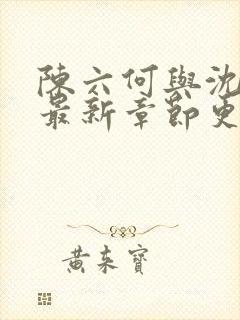 陳六何與沈
最新章節更
黃來寶